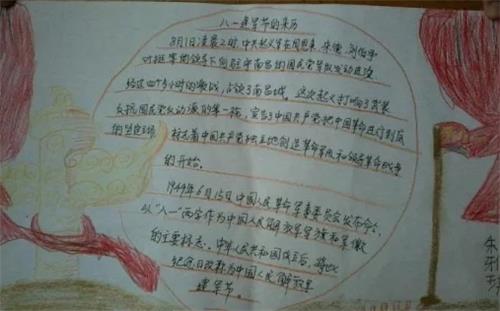 八一建军节的来历
8月1日凌晨2时,中共起义军在周恩来、朱德、刘伯承
叶挺等的领导下向驻守南昌的国民党军队发动进攻
经过四个多小时的激战,占领了南昌城。这次起义打响了武装
反抗国民党反动派的第一枪,宣告了中国共产党把中国革命进行到底
的坚定立场 标志着中国共产党独立地创造革命军队和领导革命战争
的开始。
1949年6月15日中国人民革命军事委员会发布命令,
以"八一"两字作为中国人民解放军军旗和军徽
的主要标志。中华人民共和国成立后,将此
纪念日改称为中国人民解放军
建军节。
朱